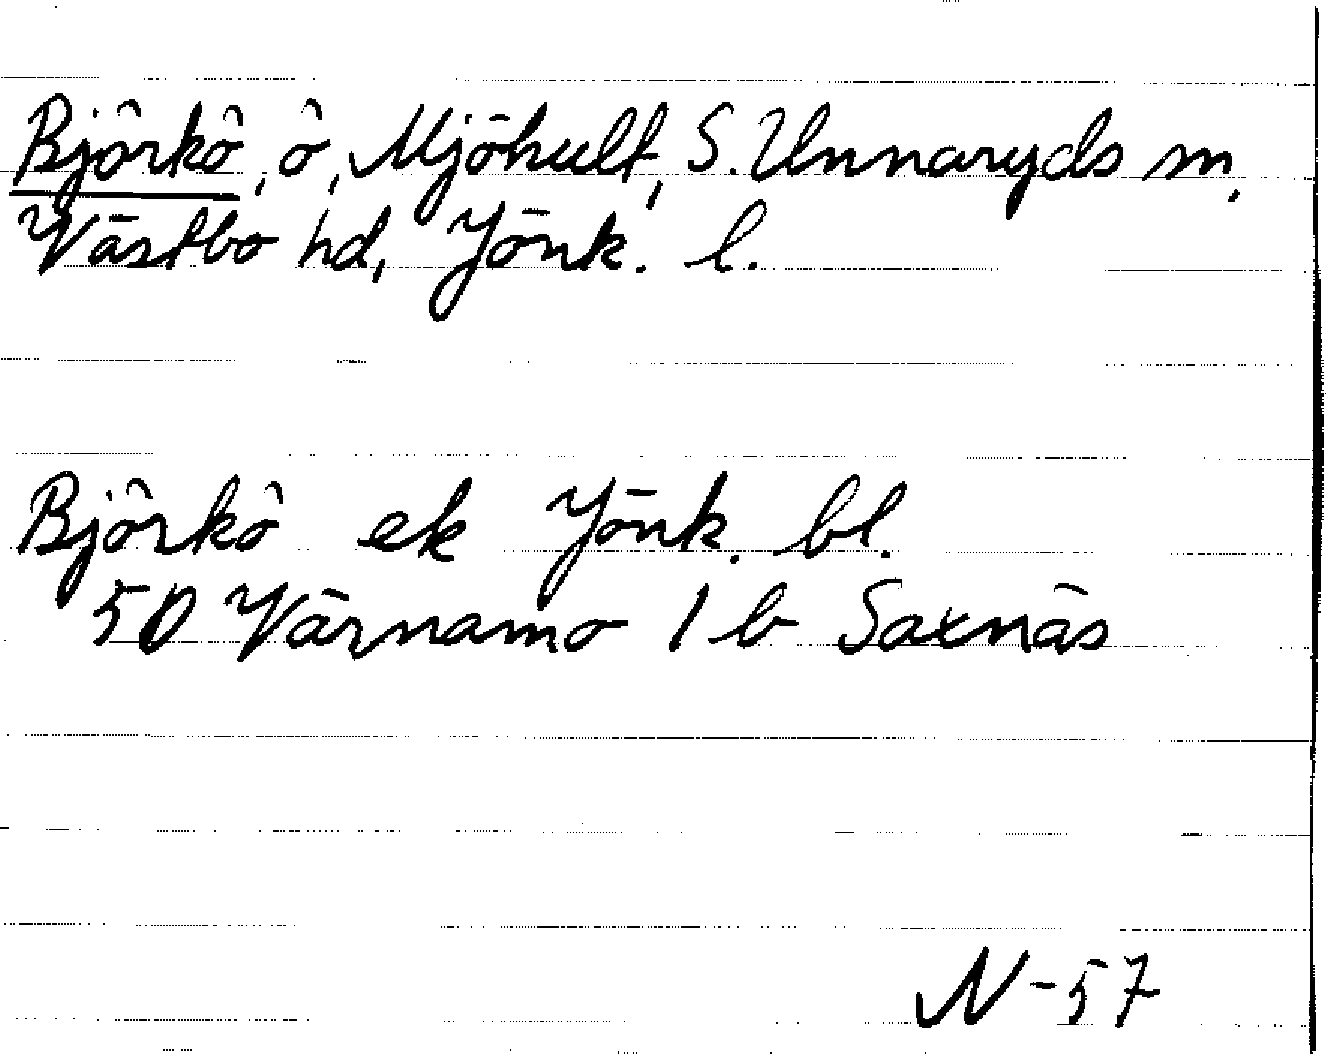 Björkö, ö, Mjöhult, S. Unnaryds sn,
Västbo hd, Jönk. l.
Björkö ek Jönk. bl.
5D Värnamo 1 b Saxnäs
N-57